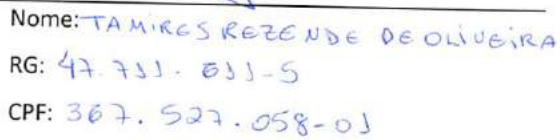 Nome: TAMIRES REZENDE DE OLIVEIRA
RG: 47.711.611-5
CPF: 367.527.058-01